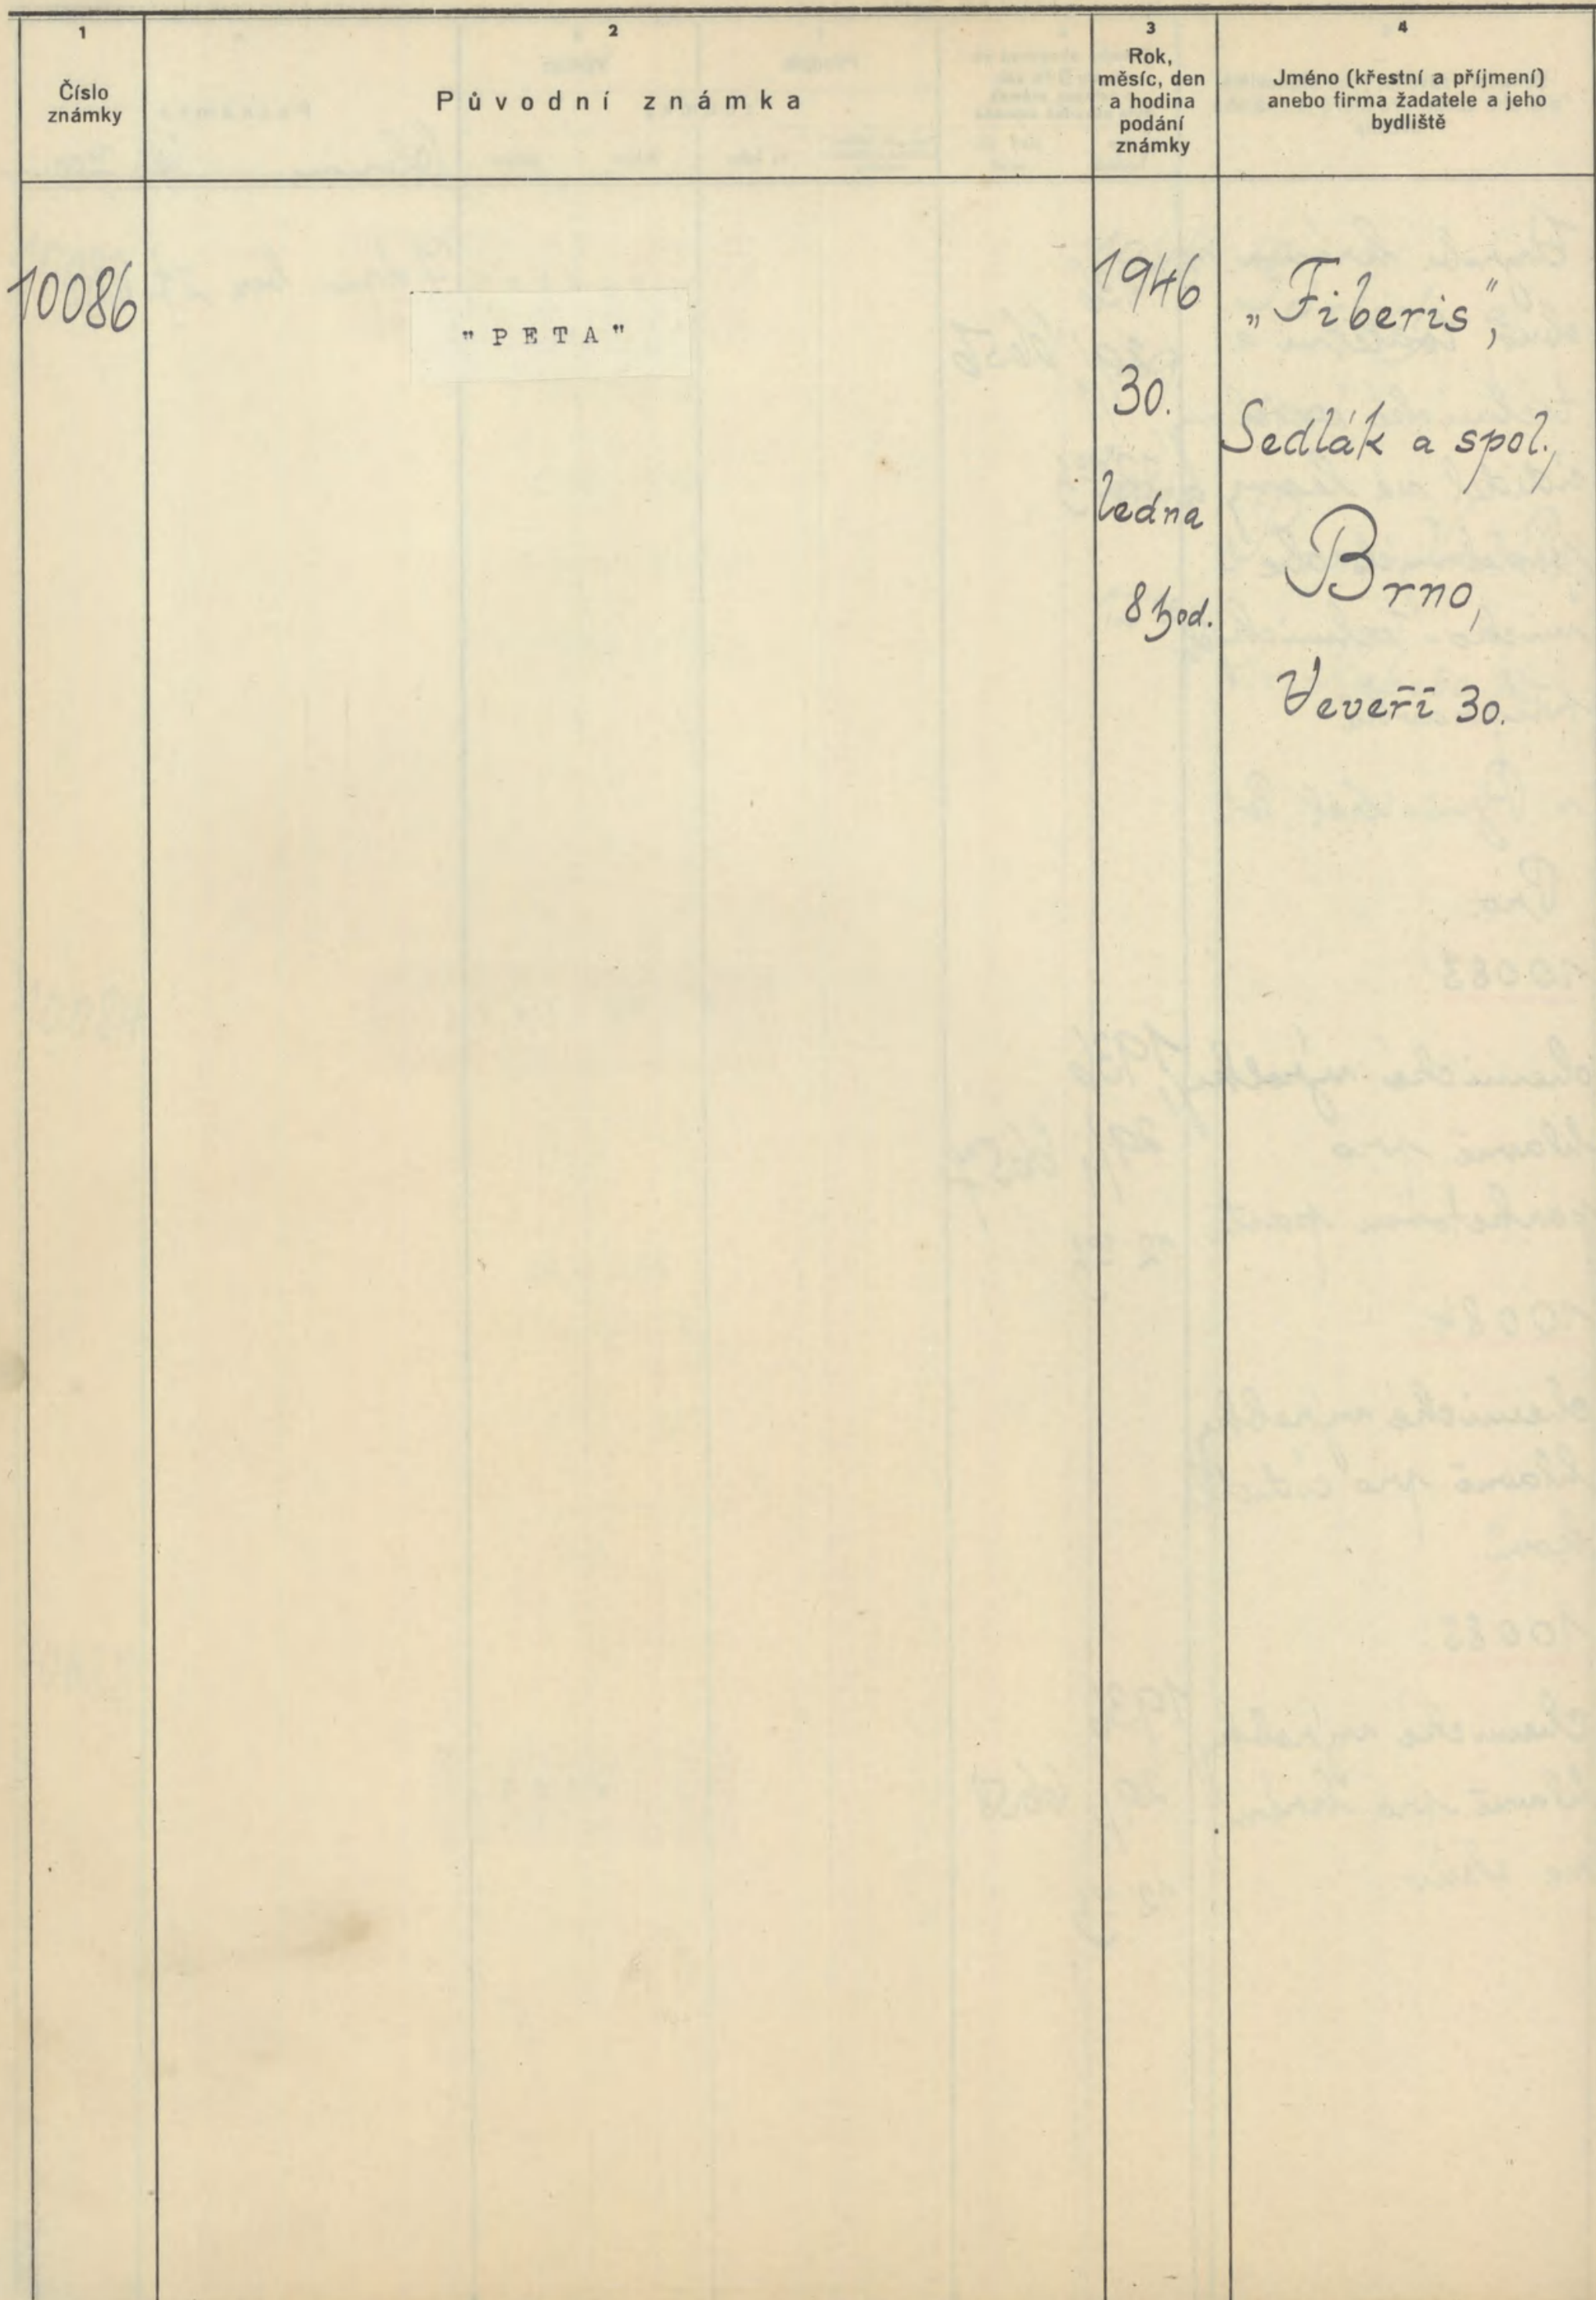 1
Číslo
známky
2
Původní známka
3
Rok,
měsíc, den
a hodina
podání
známky
4
Jméno (křestní a příjmení)
anebo firma žadatele a jeho
bydliště
10086
"PETA"
1946
30.
ledna
8 hod.
„Fiberis",
Sedlák a spol.,
Brno,
Veveří 30.